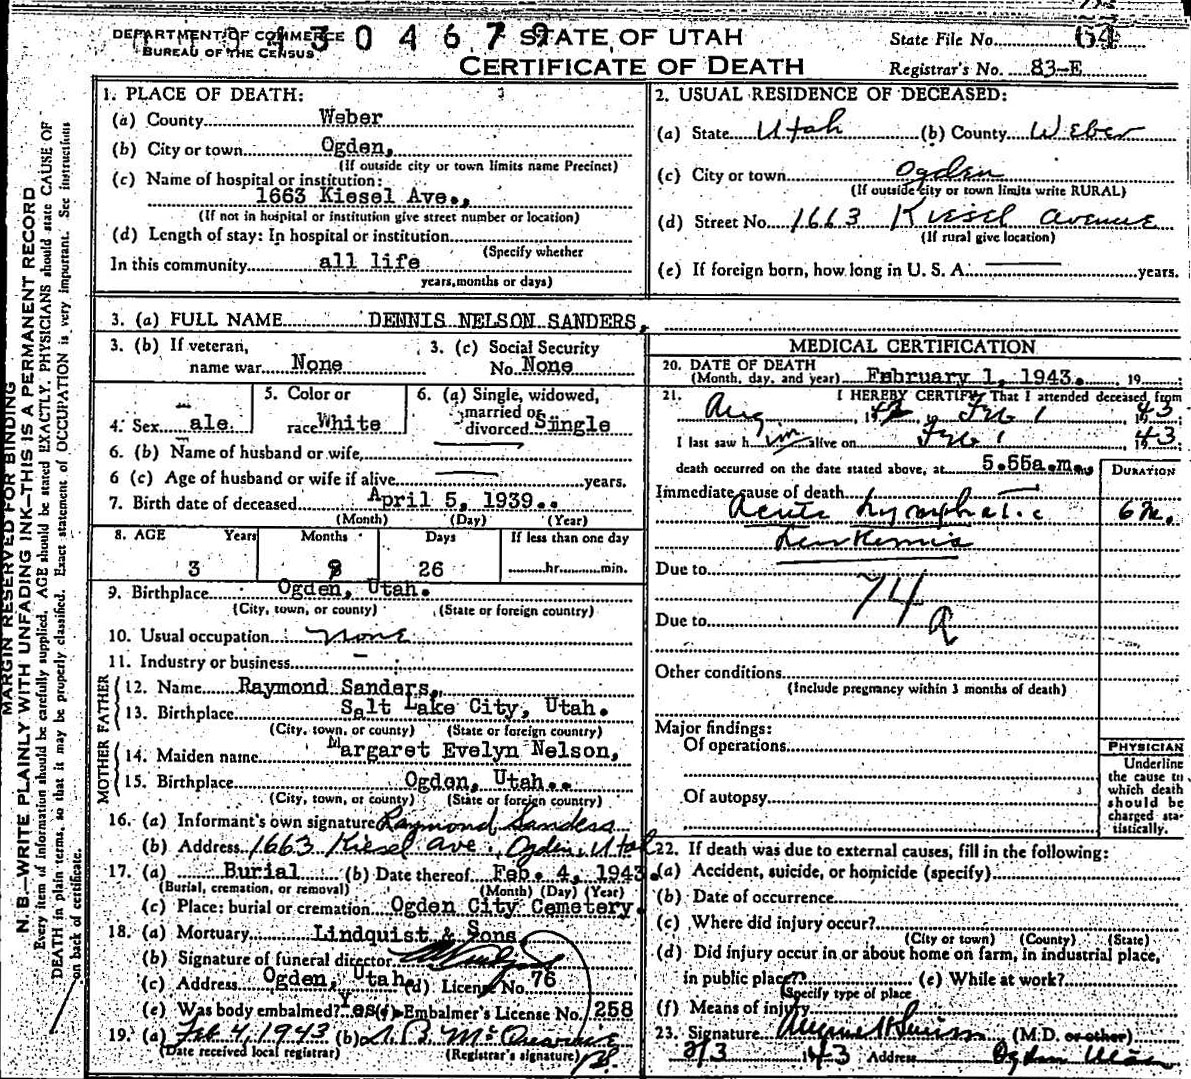 DEPARTMENT OF COMMERCE
BUREAU OF THE CENSUS
STATE OF UTAH
CERTIFICATE OF DEATH
State File No. 64
Registrar's No. 83-E
MARGIN RESERVED FOR BINDING
N. B.—WRITE PLAINLY WITH UNFADING INK—THIS IS A PERMANENT RECORD
Every item of information should be carefully supplied. AGE should be stated EXACTLY. PHYSICIANS should state CAUSE OF
DEATH in plain terms, so that it may be properly classified. Exact statement of OCCUPATION is very important. See instructions
on back of certificate.
1. PLACE OF DEATH:
(a) County Weber
(b) City or town Ogden,
(If outside city or town limits name Precinct)
(c) Name of hospital or institution:
1663 Kiesel Ave.,
(If not in hospital or institution give street number or location)
(d) Length of stay: In hospital or institution
(Specify whether
In this community all life
years, months or days)
2. USUAL RESIDENCE OF DECEASED:
(a) State Utah (b) County Weber
(c) City or town Ogden
(If outside city or town limits write RURAL)
(d) Street No. 1663 Kiesel Avenue
(If rural give location)
(e) If foreign born, how long in U. S. A. years.
3. (a) FULL NAME DENNIS NELSON SANDERS,
3. (b) If veteran,
name war None
3. (c) Social Security
No. None
4. Sex Male.
5. Color or
race White
6. (a) Single, widowed,
married or
divorced Single
6. (b) Name of husband or wife,
6 (c) Age of husband or wife if alive years.
7. Birth date of deceased April 5, 1939..
(Month) (Day) (Year)
8. AGE Years Months Days If less than one day
3 9 26 hr. min.
9. Birthplace Ogden, Utah.
(City, town, or county) (State or foreign country)
10. Usual occupation none
11. Industry or business —
FATHER
12. Name Raymond Sanders,
13. Birthplace Salt Lake City, Utah.
(City, town, or county) (State or foreign country)
MOTHER
14. Maiden name Margaret Evelyn Nelson,
15. Birthplace Ogden, Utah..
(City, town, or county) (State or foreign country)
16. (a) Informant's own signature Raymond Sanders
(b) Address 1663 Kiesel Ave., Ogden, Utah
17. (a) Burial (b) Date thereof Feb. 4, 1943.
(Burial, cremation, or removal) (Month) (Day) (Year)
(c) Place: burial or cremation Ogden City Cemetery.
18. (a) Mortuary Lindquist & Sons
(b) Signature of funeral director
(c) Address Ogden, Utah (d) License No. 76
(e) Was body embalmed? Yes (f) Embalmer's License No. 258
19. (a) Feb 4, 1943 (b)
(Date received local registrar) (Registrar's signature)
MEDICAL CERTIFICATION
20. DATE OF DEATH
(Month, day, and year) February 1, 1943. 19
21. I HEREBY CERTIFY That I attended deceased from
Aug 1942 to Feb 1 1943
I last saw him alive on Feb 1 1943
death occurred on the date stated above, at 5.55a.m.,
DURATION
Immediate cause of death
Acute Lymphatic 6 m.
Leukemia
Due to
74
a
Due to
Other conditions
(Include pregnancy within 3 months of death)
Major findings:
Of operations
Of autopsy
PHYSICIAN
Underline
the cause to
which death
should be
charged sta-
tistically.
22. If death was due to external causes, fill in the following:
(a) Accident, suicide, or homicide (specify)
(b) Date of occurrence
(c) Where did injury occur?
(City or town) (County) (State)
(d) Did injury occur in or about home on farm, in industrial place,
in public place? (e) While at work?
(Specify type of place
(f) Means of injury
23. Signature (M.D. or other)
2/3 1943 Address Ogden Utah